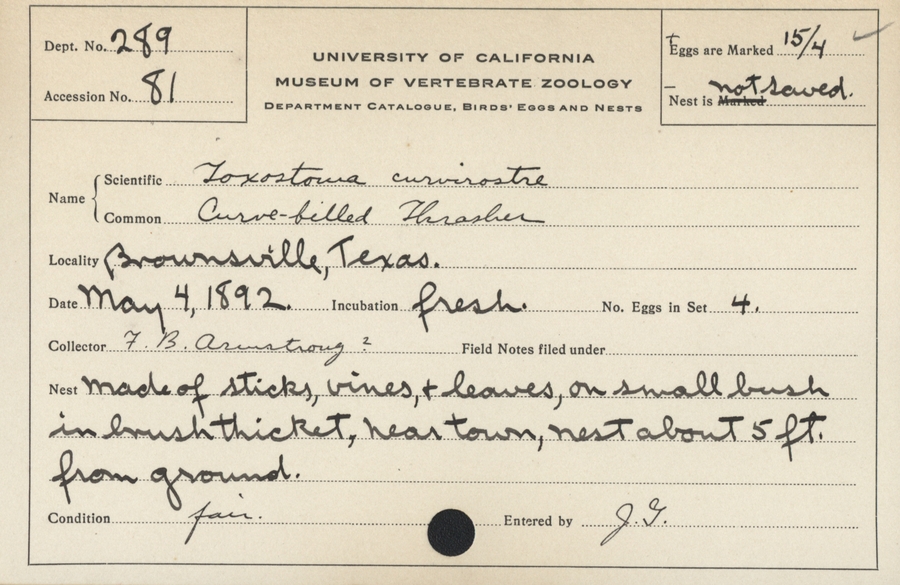 Dept. No. 289
Accession No. 81
UNIVERSITY OF CALIFORNIA
MUSEUM OF VERTEBRATE ZOOLOGY
DEPARTMENT CATALOGUE, BIRDS' EGGS AND NESTS
Eggs are Marked 15/4
not saved.
Nest is Marked
Name
Scientific Toxostoma curvirostre
Common Curve-billed Thrasher
Locality Brownsville, Texas.
Date May 4, 1892. Incubation fresh. No. Eggs in Set 4.
Collector F. B. Armstrong ? Field Notes filed under
Nest made of sticks, vines, + leaves, on small bush
in brush thicket, near town, nest about 5 ft.
from ground.
Condition fair. Entered by J. G.